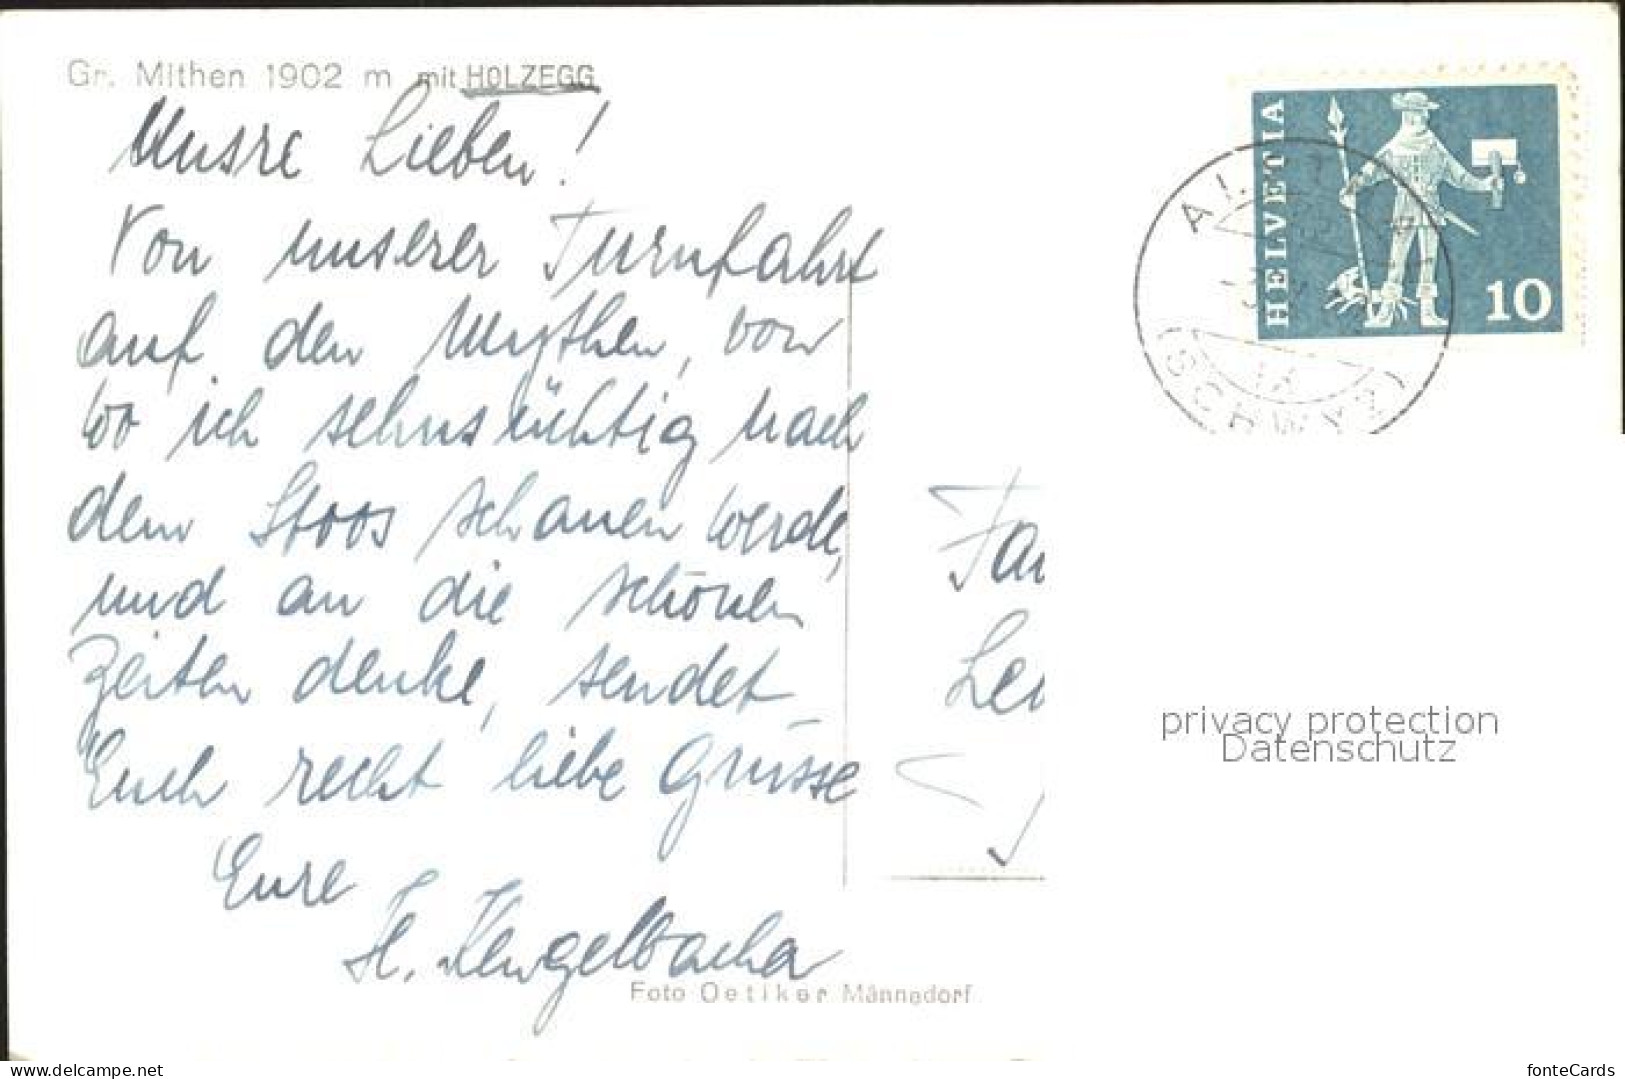 Gr. Mithen 1902 m mit HOLZEGG
Unsre Lieben!
Von unserer Turnfahrt
auf den Mythen, von
wo ich sehnsüchtig nach
dem Stoos schauen werde,
und an die schönen
Zeiten denke, sendet
Euch recht liebe Grüsse
Eure
Foto Oetiker Männedorf
HELVETIA
10
(SCHWYZ)
privacy protection
Datenschutz
www.delcampe.net
fonteCards